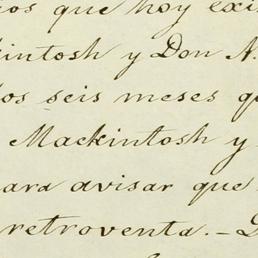 ros que hoy exis
kintosh y Don N.
los seis meses qu
Mackintosh y
para avisar que
retroventa. - D